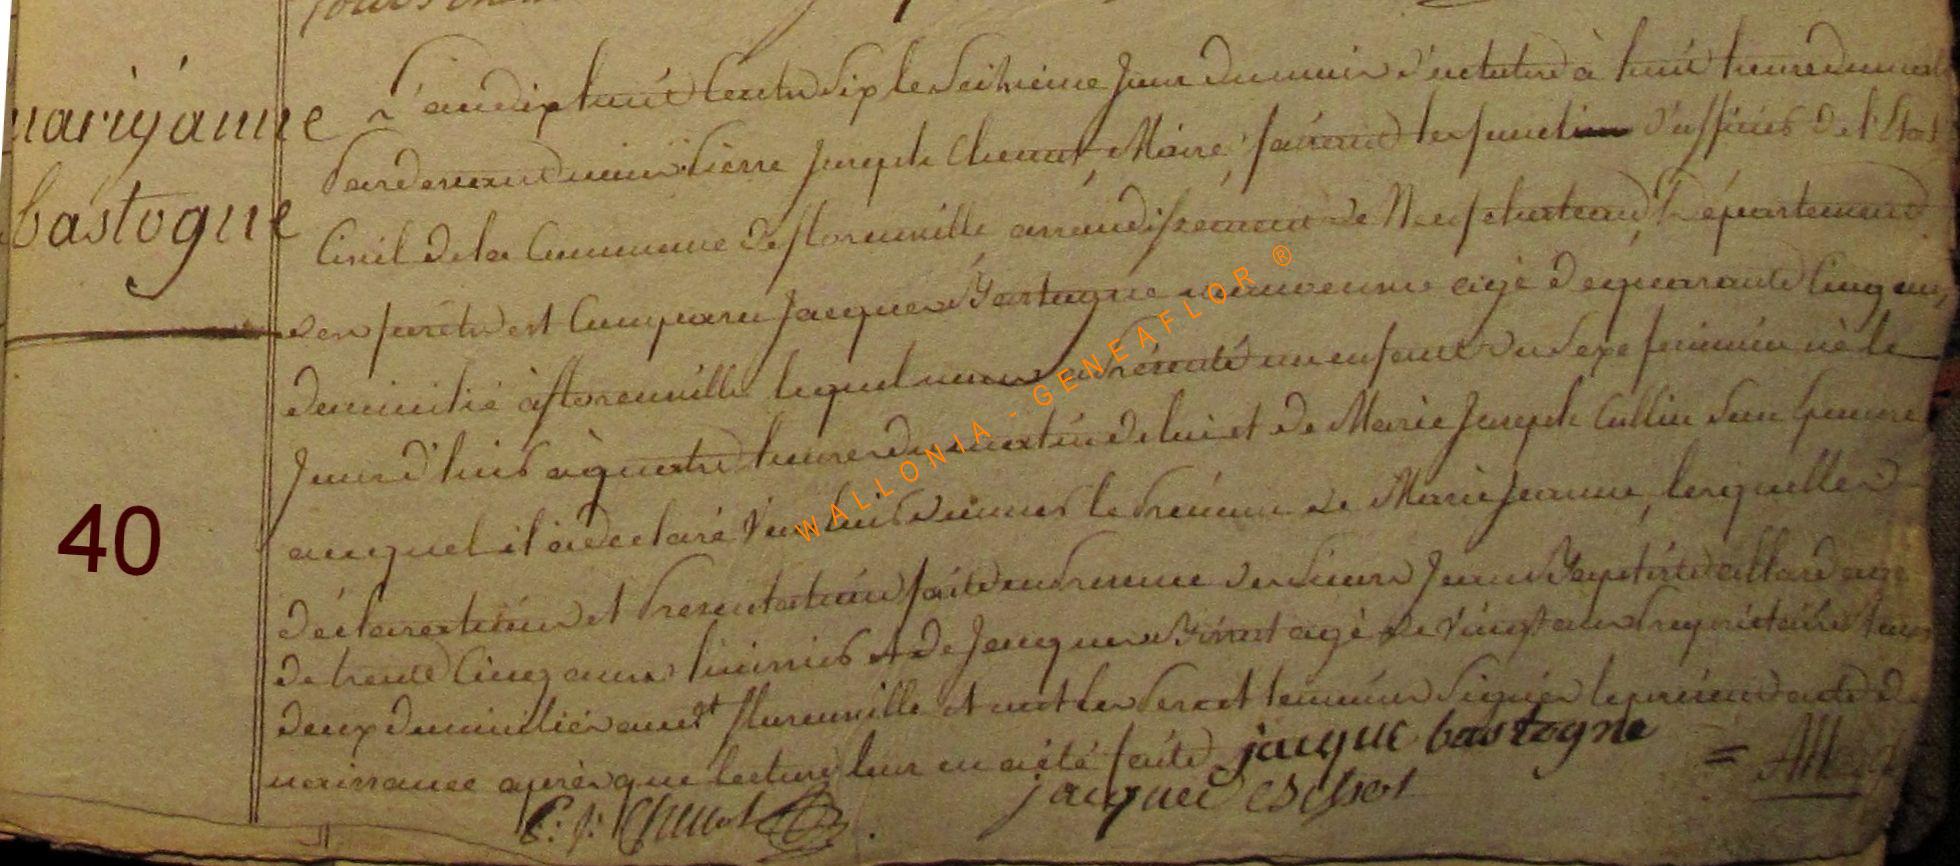 mariyánne
bastogne
40
L'an dix huit cent six le seizieme jour du mois d'octobre à huit heure du matin
Pardevant nous Pierre Joseph Chenot Maire faisant les fonction d'officier de l'Etat
Civil de la Commune de florenville arrondissement de Neufchateau Département
des forêts est comparu Jacques Bastogne agé de quarante cinq ans
domicilié à florenville lequel nous a présenté un enfant du sexe féminin né le
jourd'huis à quatre heures du matin de lui et de Marie Joseph Collin son épouse
auquel il a declaré vouloir donner le Prénom de Marie Jeanne, lesquelles
déclaration et Presentation faite en Presence des Sieurs Jean Baptiste allard agé
de trente cinq ans huissier et de Jacques agé de vingt ans Propriétaire tous
deux domiciliés audt florenville et ont les Pere et temoins signés le présent acte de
naissance après que lecture leur en a été faite jacque bastogne
= Allard
P: J: Chenot jacque
WALLONIA - GENEAFLOR ®